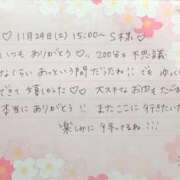 ♡ 11月29日(土) 15:00〜 S様 ♡
いつも ありがとう♡ 200分も 不思議
なくらい あっという間 だったね!! でも ゆっくり
できて 嬉しかった♡ 大スキなお
本当に ありがとう!! また ここに 行きたいな
楽しみに 待ってるね!!!